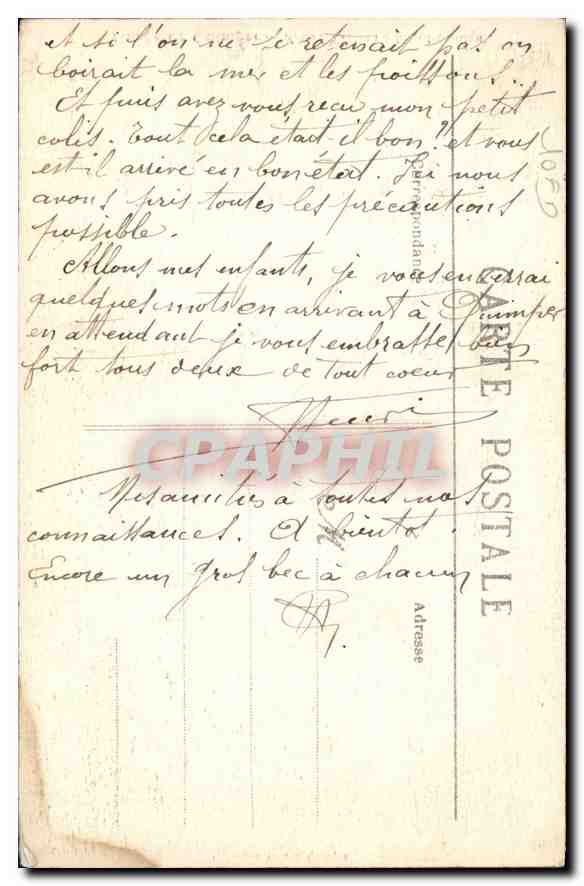 et si l'on ne se retenait pas on
boirait la mer et les poissons...
Et puis avez vous reçu mon petit
colis. Tout cela était il bon? et vous
est il arrivé en bon état. Ici nous
avons pris toutes les précautions
possible.
Allons mes enfants, je vous enverrai
quelques mots en arrivant à Quimper
en attendant je vous embrasse bien
fort tous deux de tout coeur
Henri
Mes amitiés à toutes nos
connaissances. A bientôt.
Encore un gros bec à chacun
CARTE POSTALE
Correspondance
Adresse
CPAPHIL